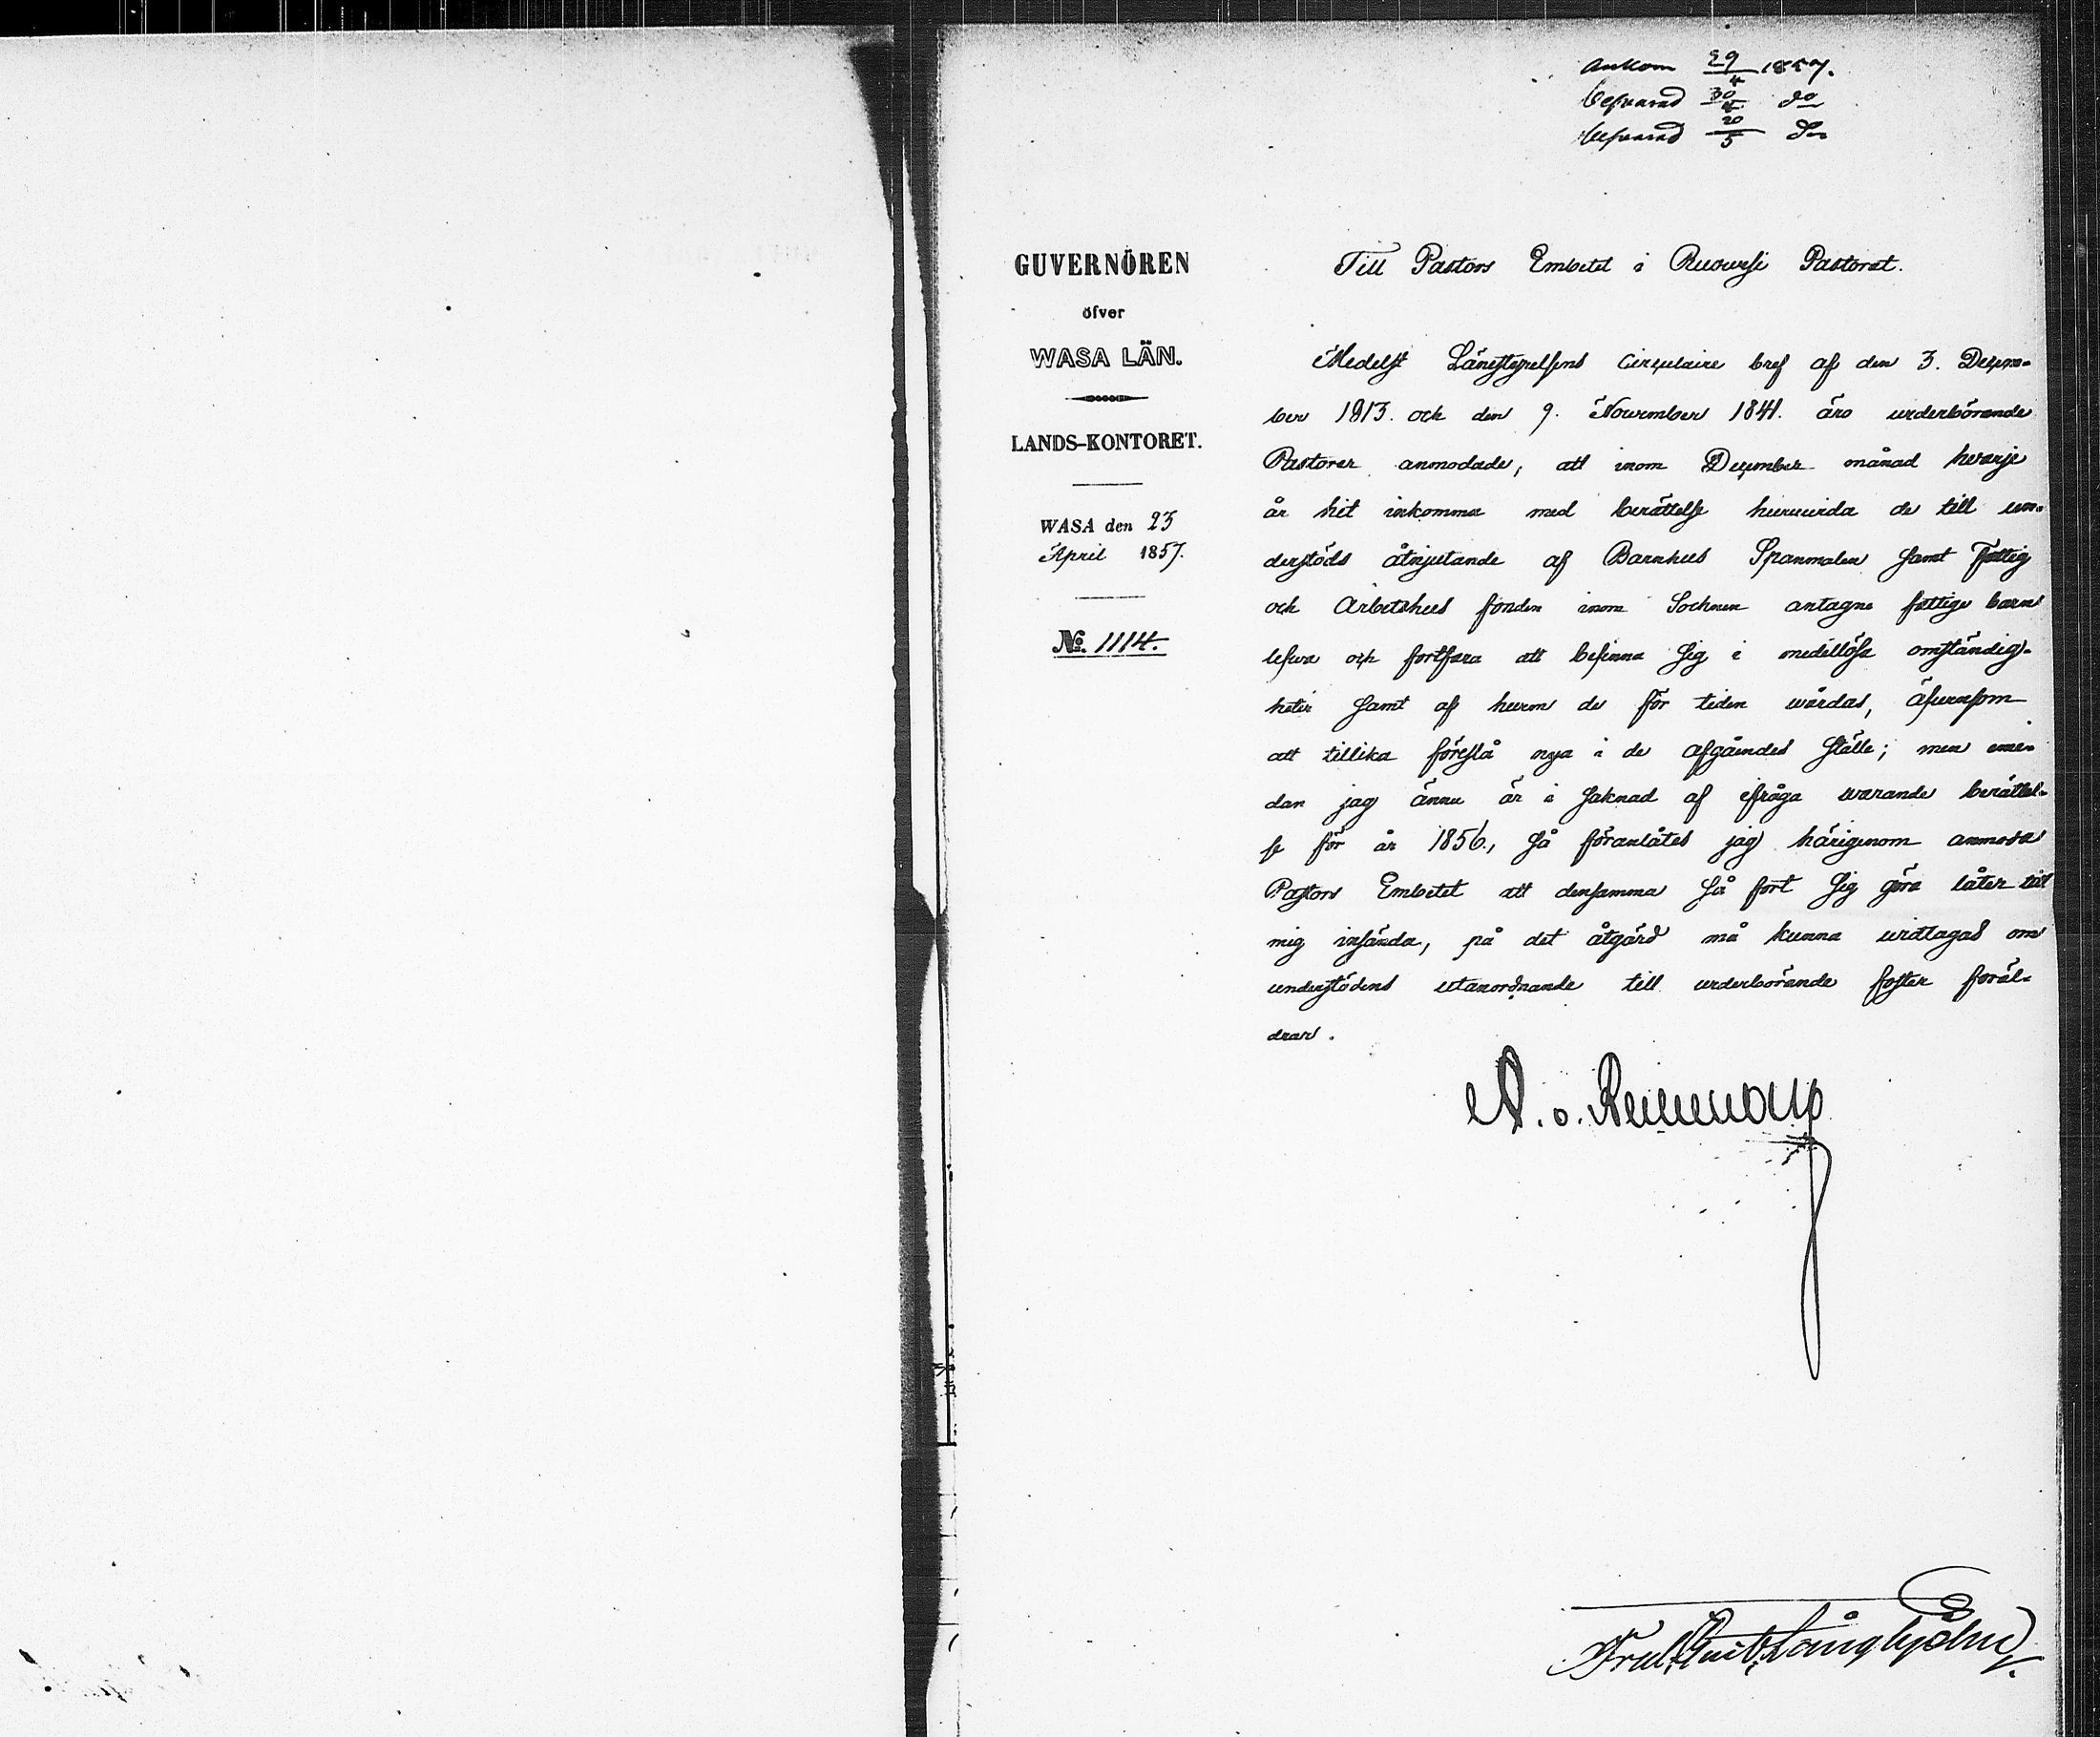 Ankom 29/4 1857.
besvarad 30/4 do
besvarad 20/5 do
GUVERNÖREN
öfver
WASA LÄN.
LANDS-KONTORET.
WASA den 23
April 1857.
No. 1114.
Till Pastors Embetet i Ruovesi Pastorat.
Medelst Länestyrelsens Circulaire bref af den 3. Decem-
ber 1813. och den 9. November 1841. äro vederbörande
Pastorer anmodade, att inom December månad hvarje
år hit inkomma med berättelse huruvida de till un-
derstöds åtnjutande af Barnhus Spanmålen samt Fattig
och Arbetshus fonden inom Socknen antagne fattige barn
lefva och fortfara att befinna sig i medellösa omständig-
heter samt af hvem de för tiden vårdas, äfvensom
att tillika föreslå nya i de afgåendes ställe; men eme-
dan jag ännu är i saknad af ifråga varande berättel-
se för år 1856., så föranlåtes jag härigenom anmoda
Pastors Embetet att densamma så fort sig göra låter till
mig insända, på det åtgärd må kunna vidtagas om
understödens utanordnande till vederbörande foster föräl-
drar.